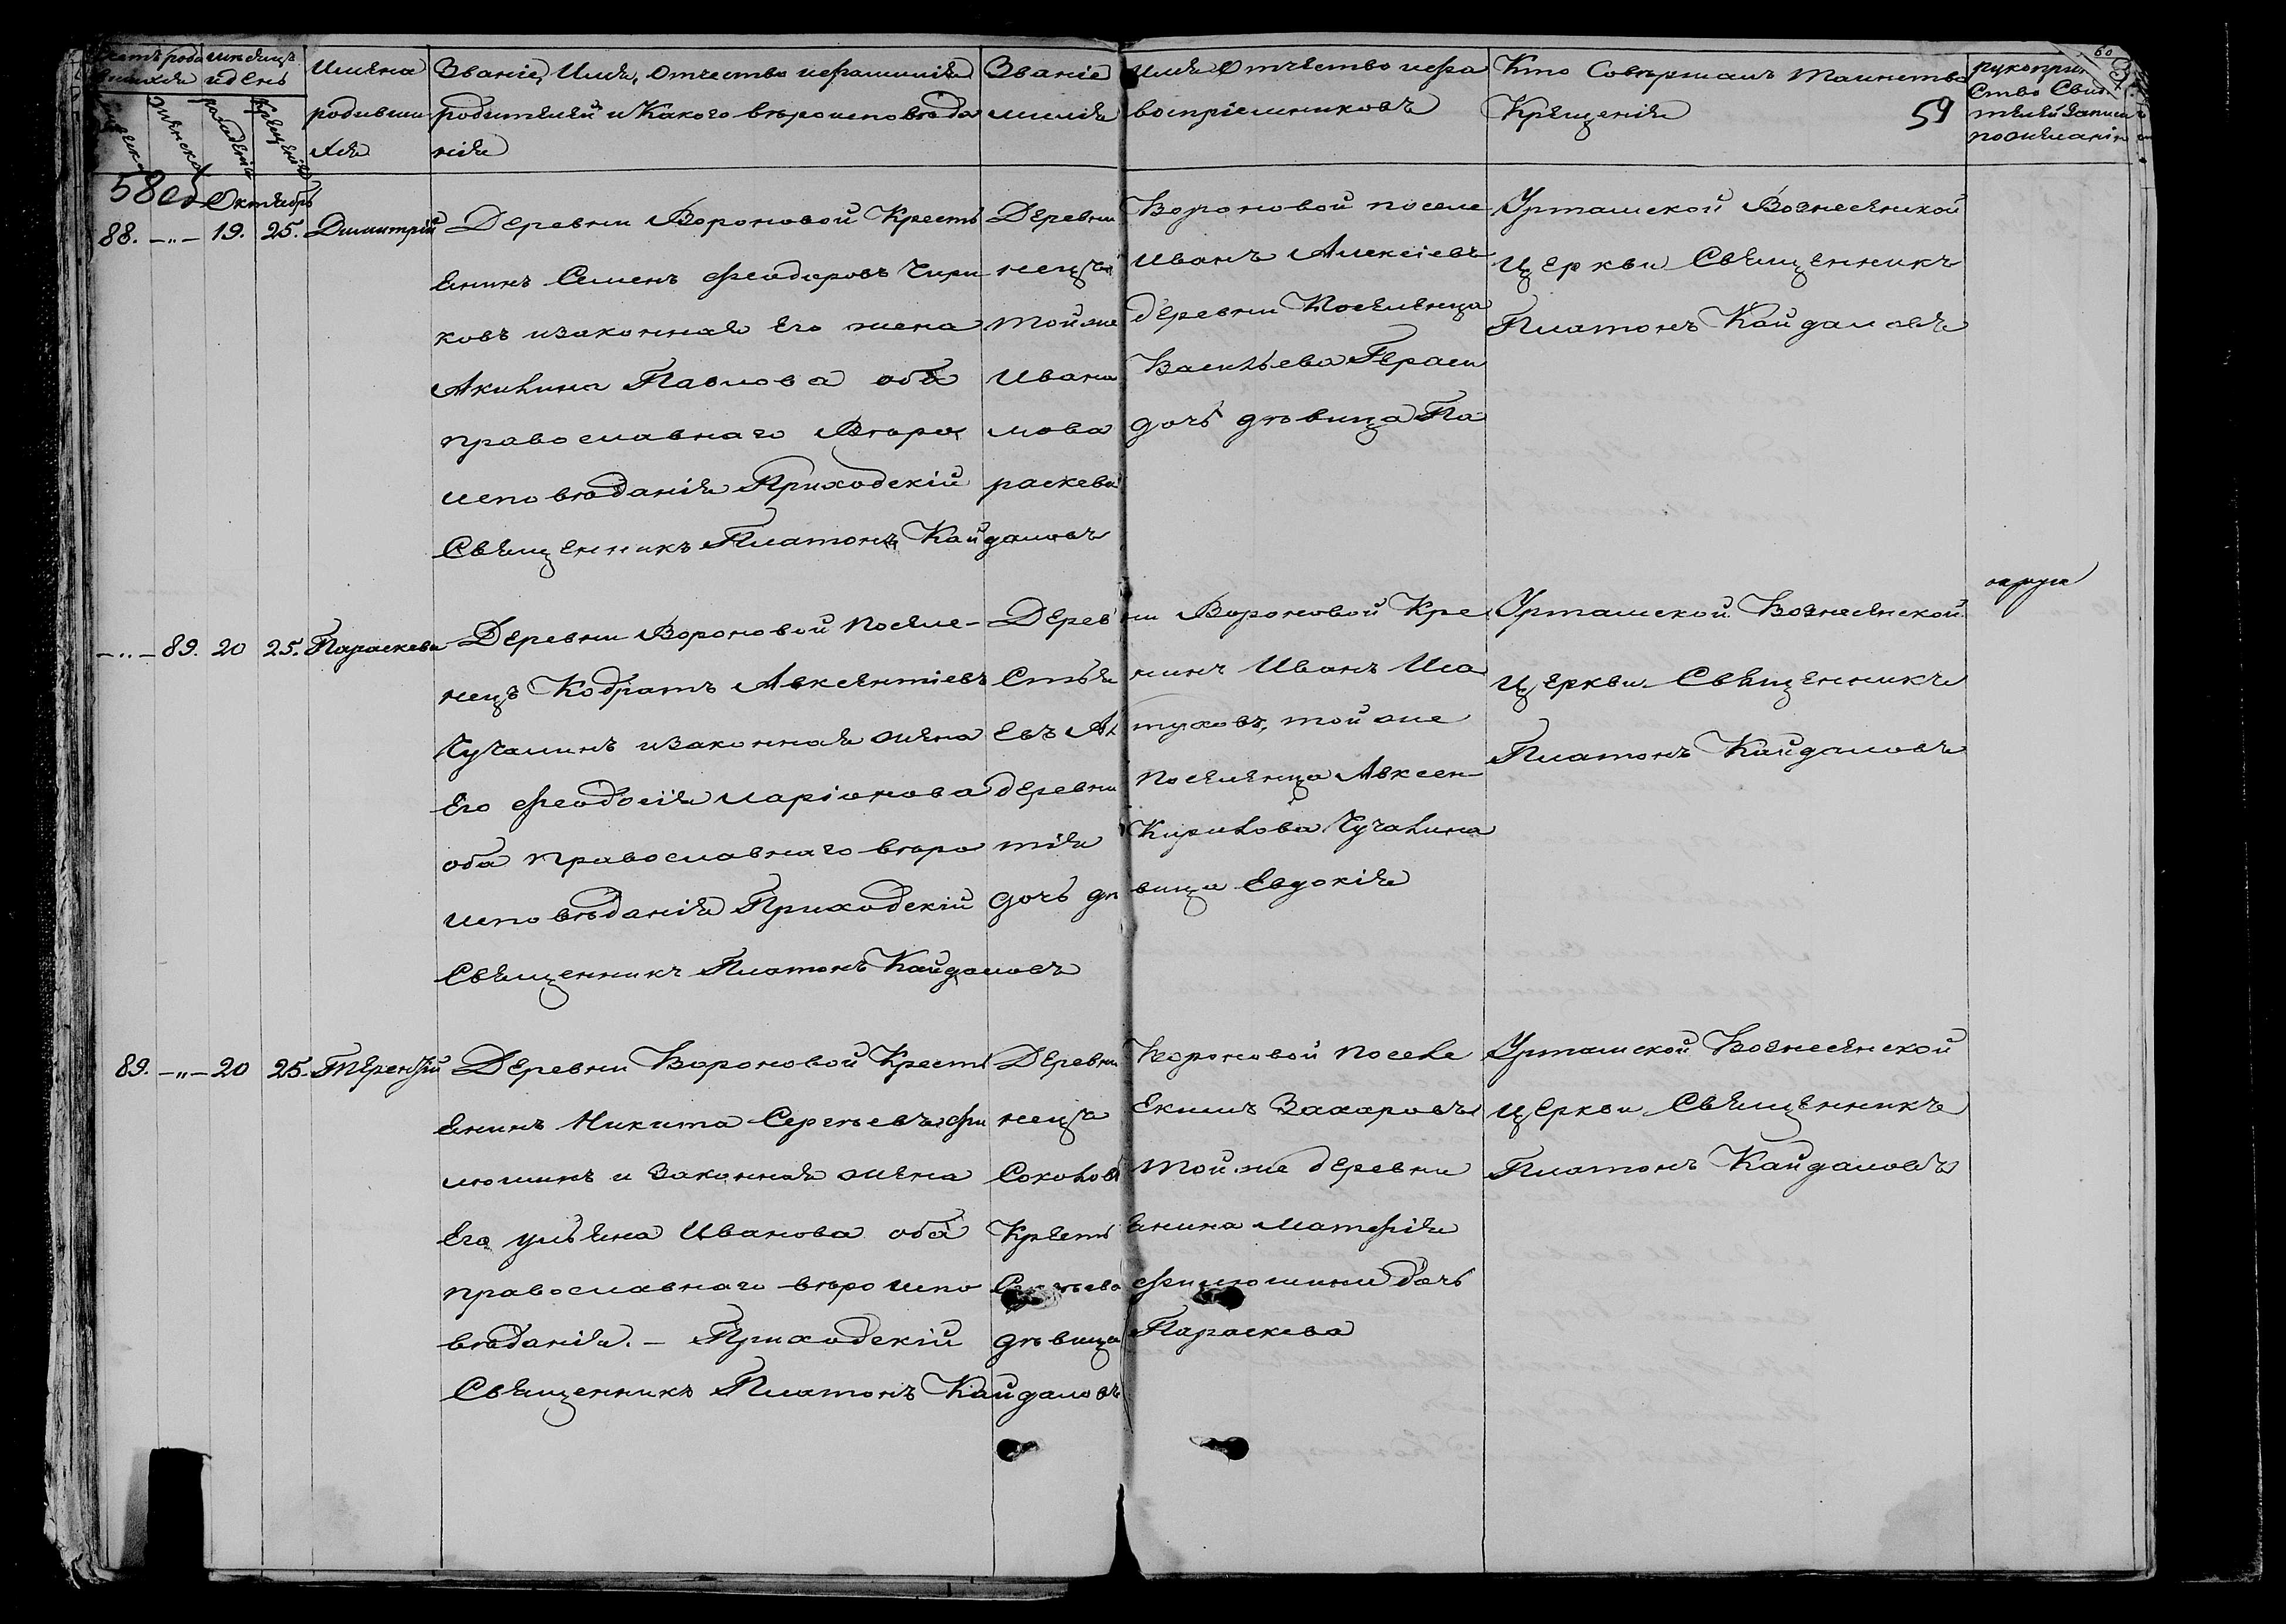 Счетъ родившихся
мѣсяцъ и день
Имѣна родившихся
Званіе, Имя, Отчество и фамилія родителей и Какого вѣроисповѣданія
Званіе имя Отчѣство и фамилія воспріемниковъ
Кто Совѣршалъ Таинство Крѣщенія
59
60
58 об
Октябрь
88. -"- 19. 25. Димитрій
Деревни Вороновой Кресть
янинъ Семенъ Феодоровъ Чири
ковъ и законная Его жена
Акилина Павлова оба
православнаго Вѣро
исповѣданія Приходскій
Священникъ Платонъ Кайдаловъ
Деревни Вороновой поселе
нецъ Иванъ Алексіевъ
той же деревни Поселенца
Ивана Васильева Гераси
мова дочь дѣвица Па
раскева
Урташской Вознесенской
Церкви Священникъ
Платонъ Кайдаловъ
-"- 89. 20 25. Параскева
Деревни Вороновой Поселе-
нецъ Кодратъ Авксентіевъ
Чучалинъ и законная жена
Его Феодосія иларіонова
оба православнаго вѣро
исповѣданія Приходскій
Священникъ Платонъ Кайдаловъ
Деревни Вороновой Кре
стьянинъ Иванъ Иса
евъ Алтуховъ, той же
деревни Поселенца Авксен-
тія Кирилова Чучалина
дочь дѣвица Евдокія
Урташской Вознесенской
Церкви Священникъ
Платонъ Кайдаловъ
89. -"- 20 25. Терентій
Деревни Вороновой Кресть
янинъ Никита Сергѣевъ Фи
люшинъ и Законная жена
Его ульяна Иванова оба
православнаго вѣроиспо
вѣданія. - Приходскій
Священникъ Платонъ Кайдаловъ
Деревни Вороновой поселе
нецъ Екимъ Захаровъ
Соколовъ той же деревни
Крестьянина Матфія
Сергѣева Филюшина дочь
дѣвица Параскева
Урташской Вознесенской
Церкви Священникъ
Платонъ Кайдаловъ